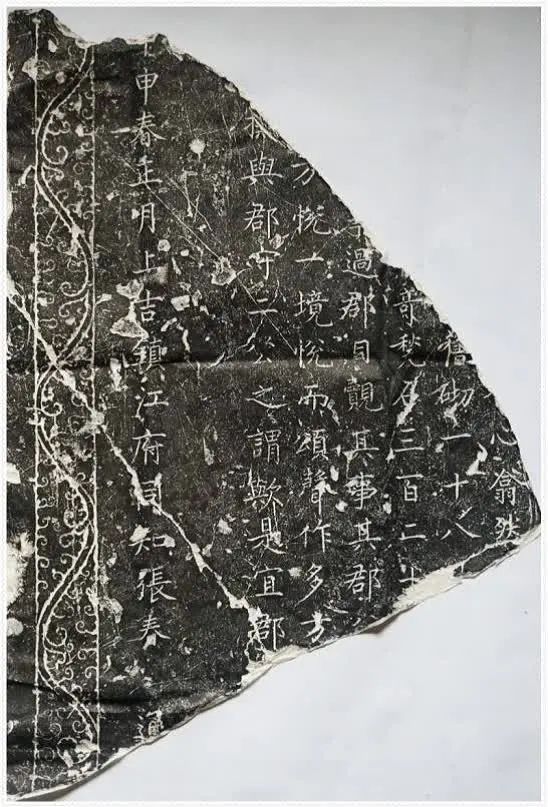 心翕然
舊砌一十八
甃石三百二十
過郡目覩其事其郡
方悅一境悅而頌聲作多方
與郡守二公之謂歟是宜郡
申春正月上吉鎮江府同知張春